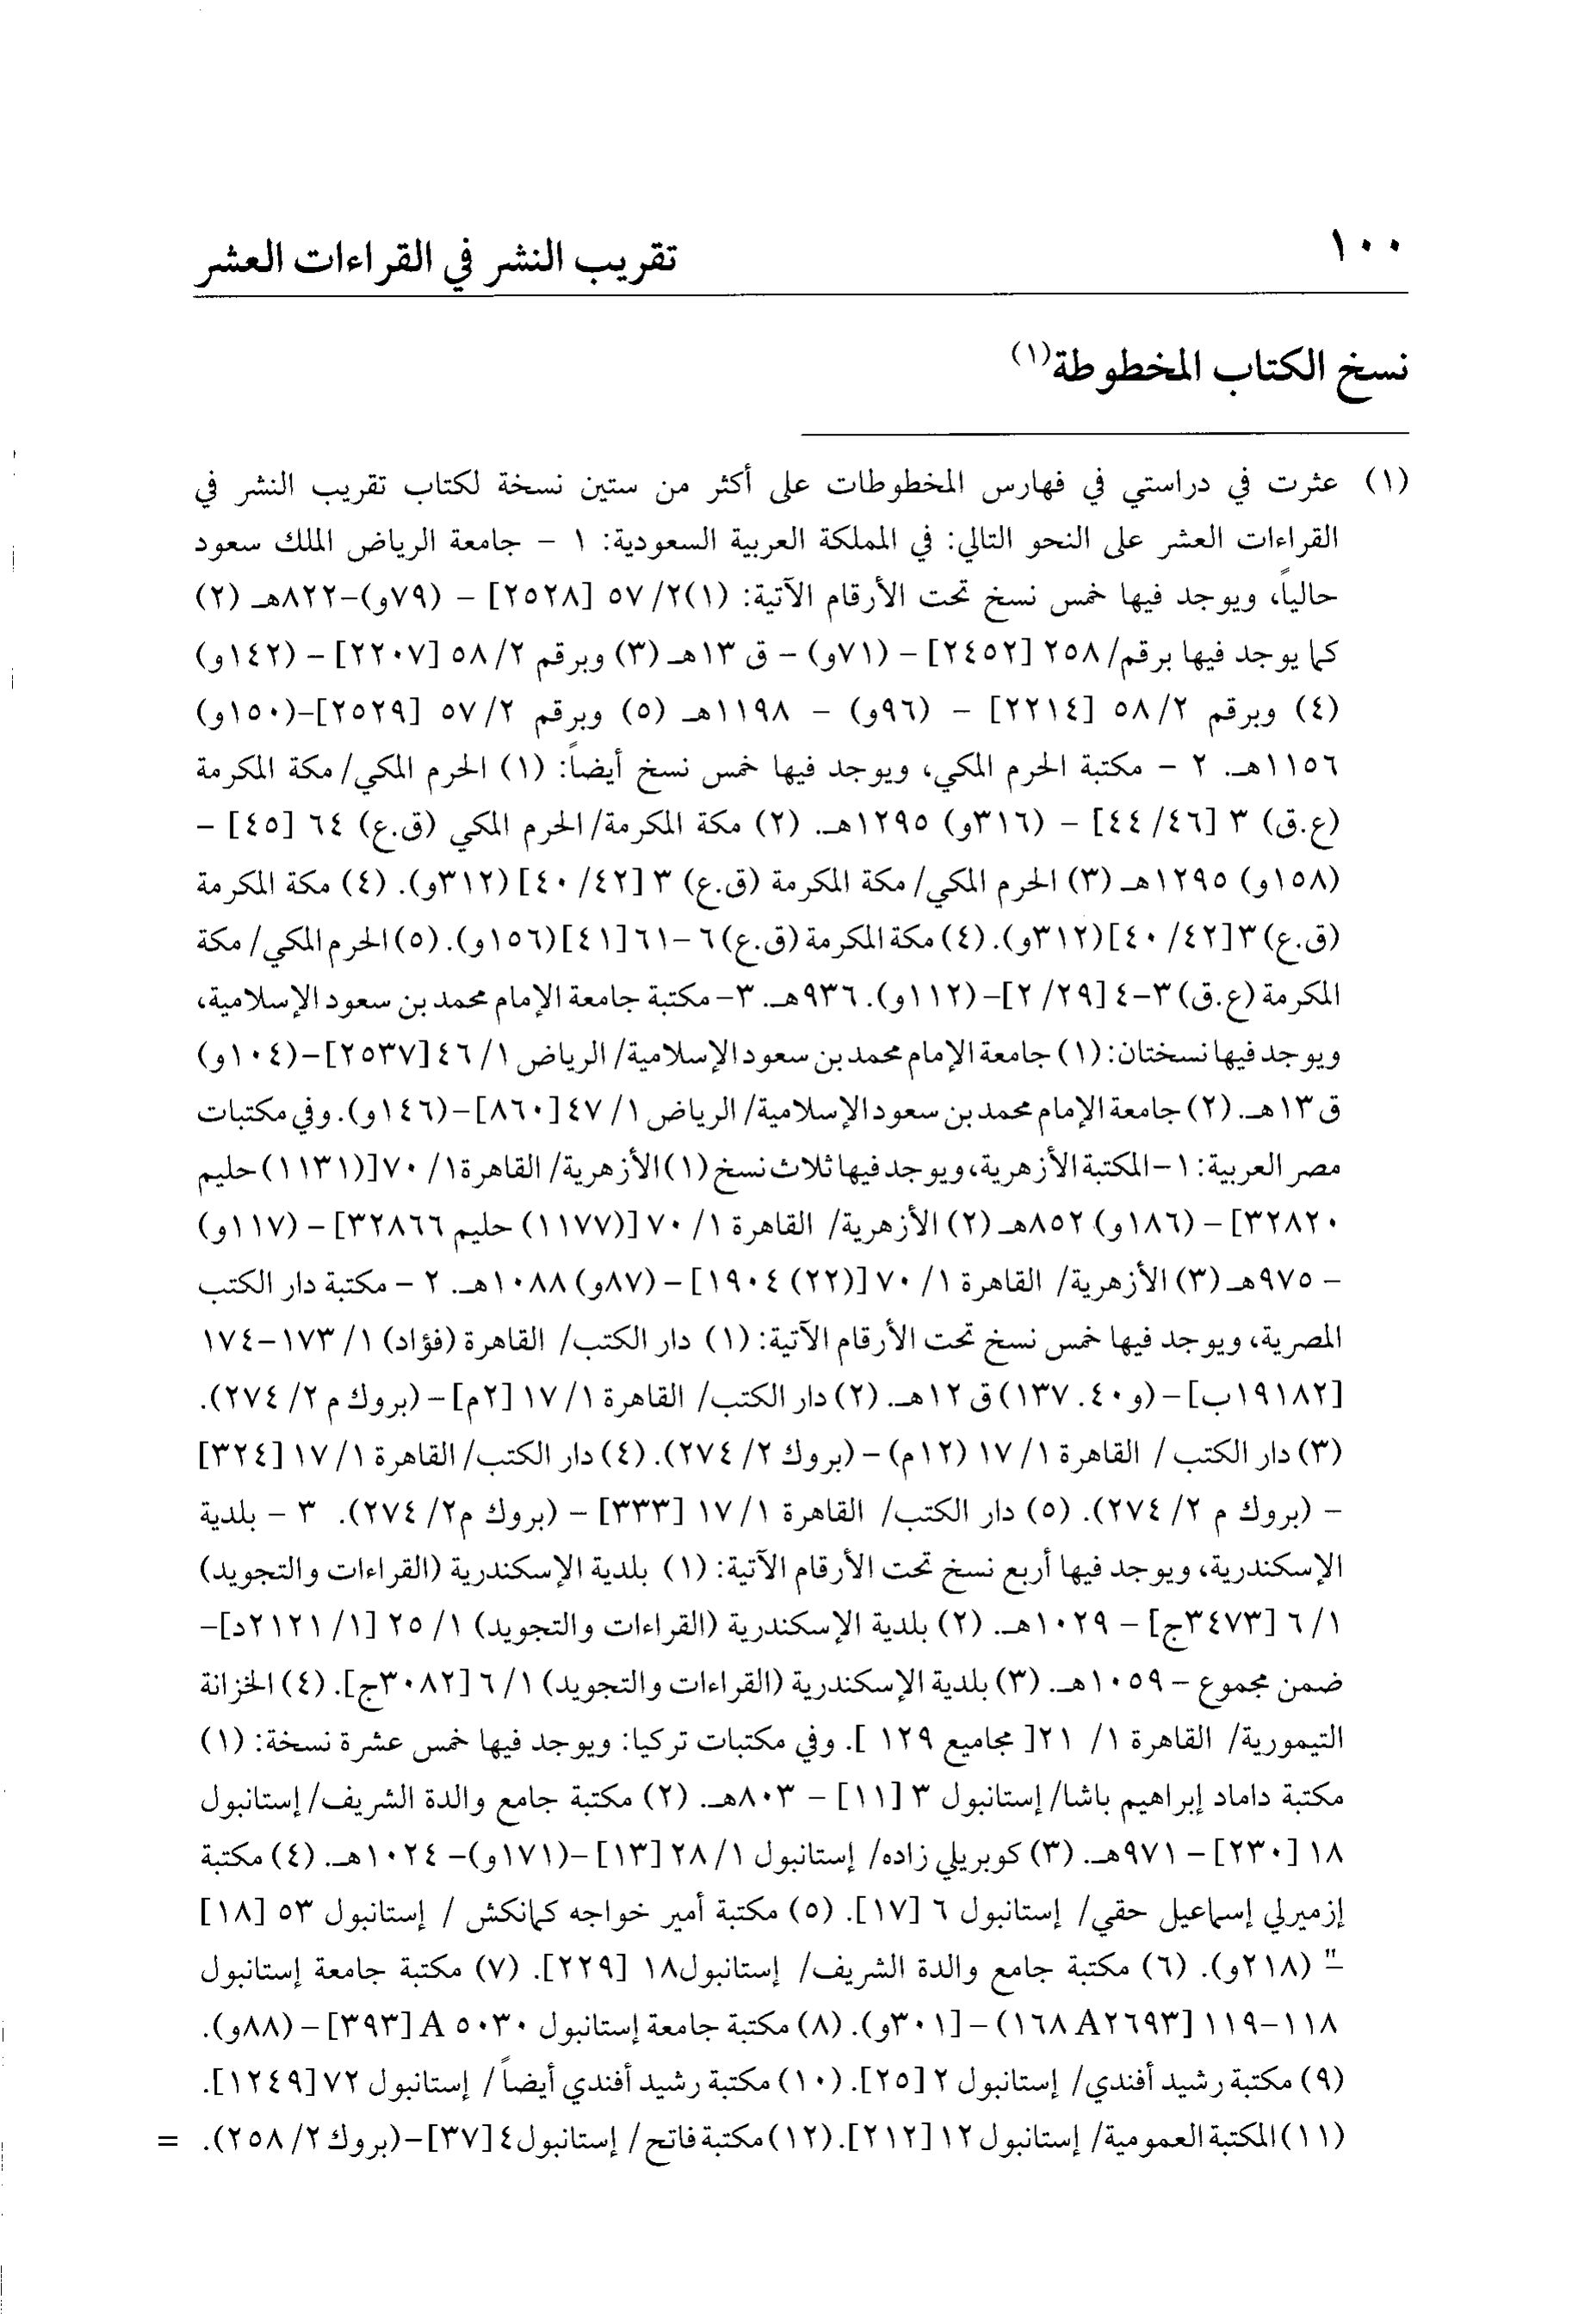 ١٠٠ تقريب النشر في القراءات العشر
نسخ الكتاب المخطوطة(١)
(١) عثرت في دراستي في فهارس المخطوطات على أكثر من ستين نسخة لكتاب تقريب النشر في
القراءات العشر على النحو التالي: في المملكة العربية السعودية: ١ - جامعة الرياض الملك سعود
حالياً، ويوجد فيها خمس نسخ تحت الأرقام الآتية: (١)٥٧/٢ [٢٥٢٨] - (٧٩و)-٨٢٢هـ (٢)
كما يوجد فيها برقم/ ٢٥٨ [٢٤٥٢] - (٧١و) - ق ١٣هـ (٣) وبرقم ٥٨/٢ [٢٢٠٧] - (١٤٢و)
(٤) وبرقم ٥٨/٢ [٢٢١٤] - (٩٦و) - ١١٩٨هـ (٥) وبرقم ٥٧/٢ [٢٥٢٩]-(١٥٠و)
١١٥٦هـ. ٢ - مكتبة الحرم المكي، ويوجد فيها خمس نسخ أيضاً: (١) الحرم المكي/ مكة المكرمة
(ع.ق) ٣ [٤٤/٤٦] - (٣١٦و) ١٢٩٥هـ. (٢) مكة المكرمة/ الحرم المكي (ق.ع) ٦٤ [٤٥] -
(١٥٨و) ١٢٩٥هـ (٣) الحرم المكي/ مكة المكرمة (ق.ع) ٣ [٤٠/٤٢] (٣١٢و). (٤) مكة المكرمة
(ق.ع) ٣[٤٠/٤٢] (٣١٢و). (٤) مكة المكرمة (ق.ع) ٦-٦١ [٤١] (١٥٦و). (٥) الحرم المكي/ مكة
المكرمة (ع.ق) ٣-٤ [٢/٢٩]-(١١٢و). ٩٣٦هـ. ٣- مكتبة جامعة الإمام محمد بن سعود الإسلامية،
ويوجد فيها نسختان: (١) جامعة الإمام محمد بن سعود الإسلامية/ الرياض ٤٦/١ [٢٥٣٧]-(١٠٤و)
ق ١٣هـ. (٢) جامعة الإمام محمد بن سعود الإسلامية/ الرياض ٤٧/١ [٨٦٠]-(١٤٦و). وفي مكتبات
مصر العربية: ١-المكتبة الأزهرية، ويوجد فيها ثلاث نسخ (١) الأزهرية/ القاهرة ٧٠/١ [(١١٣١) حليم
٣٢٨٢٠] - (١٨٦و) ٨٥٢هـ (٢) الأزهرية/ القاهرة ٧٠/١ [(١١٧٧) حليم ٣٢٨٦٦] - (١١٧و)
- ٩٧٥هـ (٣) الأزهرية/ القاهرة ٧٠/١ [(٢٢) ١٩٠٤] - (٨٧و) ١٠٨٨هـ. ٢ - مكتبة دار الكتب
المصرية، ويوجد فيها خمس نسخ تحت الأرقام الآتية: (١) دار الكتب/ القاهرة (فؤاد) ١/ ١٧٣-١٧٤
[١٩١٨٢ب] - (و٤٠. ١٣٧) ق ١٢هـ. (٢) دار الكتب/ القاهرة ١٧/١ [٢م] - (بروك م ٢٧٤/٢).
(٣) دار الكتب / القاهرة ١٧/١ (١٢م) - (بروك ٢٧٤/٢). (٤) دار الكتب/ القاهرة ١٧/١ [٣٢٤]
- (بروك م ٢٧٤/٢). (٥) دار الكتب/ القاهرة ١٧/١ [٣٣٣] - (بروك م٢٧٤/٢). ٣ - بلدية
الإسكندرية، ويوجد فيها أربع نسخ تحت الأرقام الآتية: (١) بلدية الإسكندرية (القراءات والتجويد)
٦/١ [٣٤٧٣ج] - ١٠٢٩هـ. (٢) بلدية الإسكندرية (القراءات والتجويد) ٢٥/١ [٢١٢١/١د]-
ضمن مجموع - ١٠٥٩هـ. (٣) بلدية الإسكندرية (القراءات والتجويد) ٦/١ [٣٠٨٢ج]. (٤) الخزانة
التيمورية/ القاهرة ١/ ٢١[ مجاميع ١٢٩ ]. وفي مكتبات تركيا: ويوجد فيها خمس عشرة نسخة: (١)
مكتبة داماد إبراهيم باشا/ إستانبول ٣ [١١] - ٨٠٣هـ. (٢) مكتبة جامع والدة الشريف/ إستانبول
١٨ [٢٣٠] - ٩٧١هـ. (٣) كوبريلي زاده/ إستانبول ٢٨/١ [١٣] -(١٧١و)- ١٠٢٤هـ. (٤) مكتبة
إزميرلي إسماعيل حقي/ إستانبول ٦ [١٧]. (٥) مكتبة أمير خواجه كمانكش / إستانبول ٥٣ [١٨]
- (٢١٨و). (٦) مكتبة جامع والدة الشريف/ إستانبول١٨ [٢٢٩]. (٧) مكتبة جامعة إستانبول
١١٨-١١٩ [١٦٨ A٢٦٩٣) - [٣٠١و). (٨) مكتبة جامعة إستانبول ٥٠٣٠ A [٣٩٣] - (٨٨و).
(٩) مكتبة رشيد أفندي/ إستانبول ٢ [٢٥]. (١٠) مكتبة رشيد أفندي أيضاً/ إستانبول ٧٢ [١٢٤٩].
(١١) المكتبة العمومية/ إستانبول ١٢ [٢١٢]. (١٢) مكتبة فاتح/ إستانبول٤ [٣٧]-(بروك ٢٥٨/٢). =